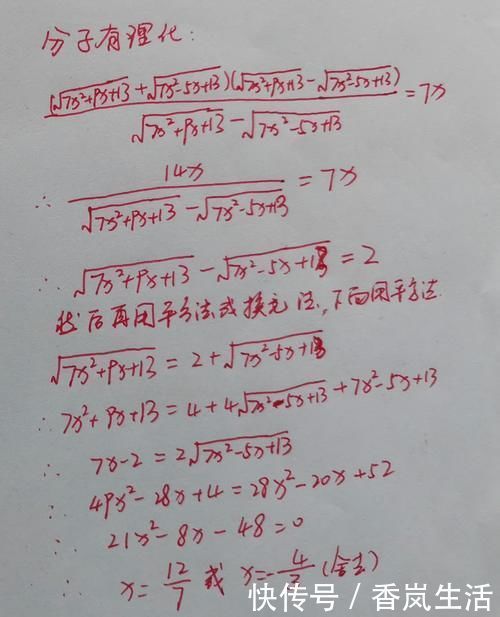 分子有理化:
(√7x²+9x+13 + √7x²-5x+13)(√7x²+9x+13 - √7x²-5x+13) / √7x²+9x+13 - √7x²-5x+13 = 7x
∴ 14x / √7x²+9x+13 - √7x²-5x+13 = 7x
∴ √7x²+9x+13 - √7x²-5x+13 = 2
然后再用平方法或换元法,下面用平方法.
√7x²+9x+13 = 2+√7x²-5x+13
∴ 7x²+9x+13 = 4+4√7x²-5x+13 +7x²-5x+13
∴ 7x-2 = 2√7x²-5x+13
∴ 49x²-28x+4 = 28x²-20x+52
∴ 21x²-8x-48=0
∴ x= 12/7 或 x=-4/3 (舍去)
快传号/香岚生活